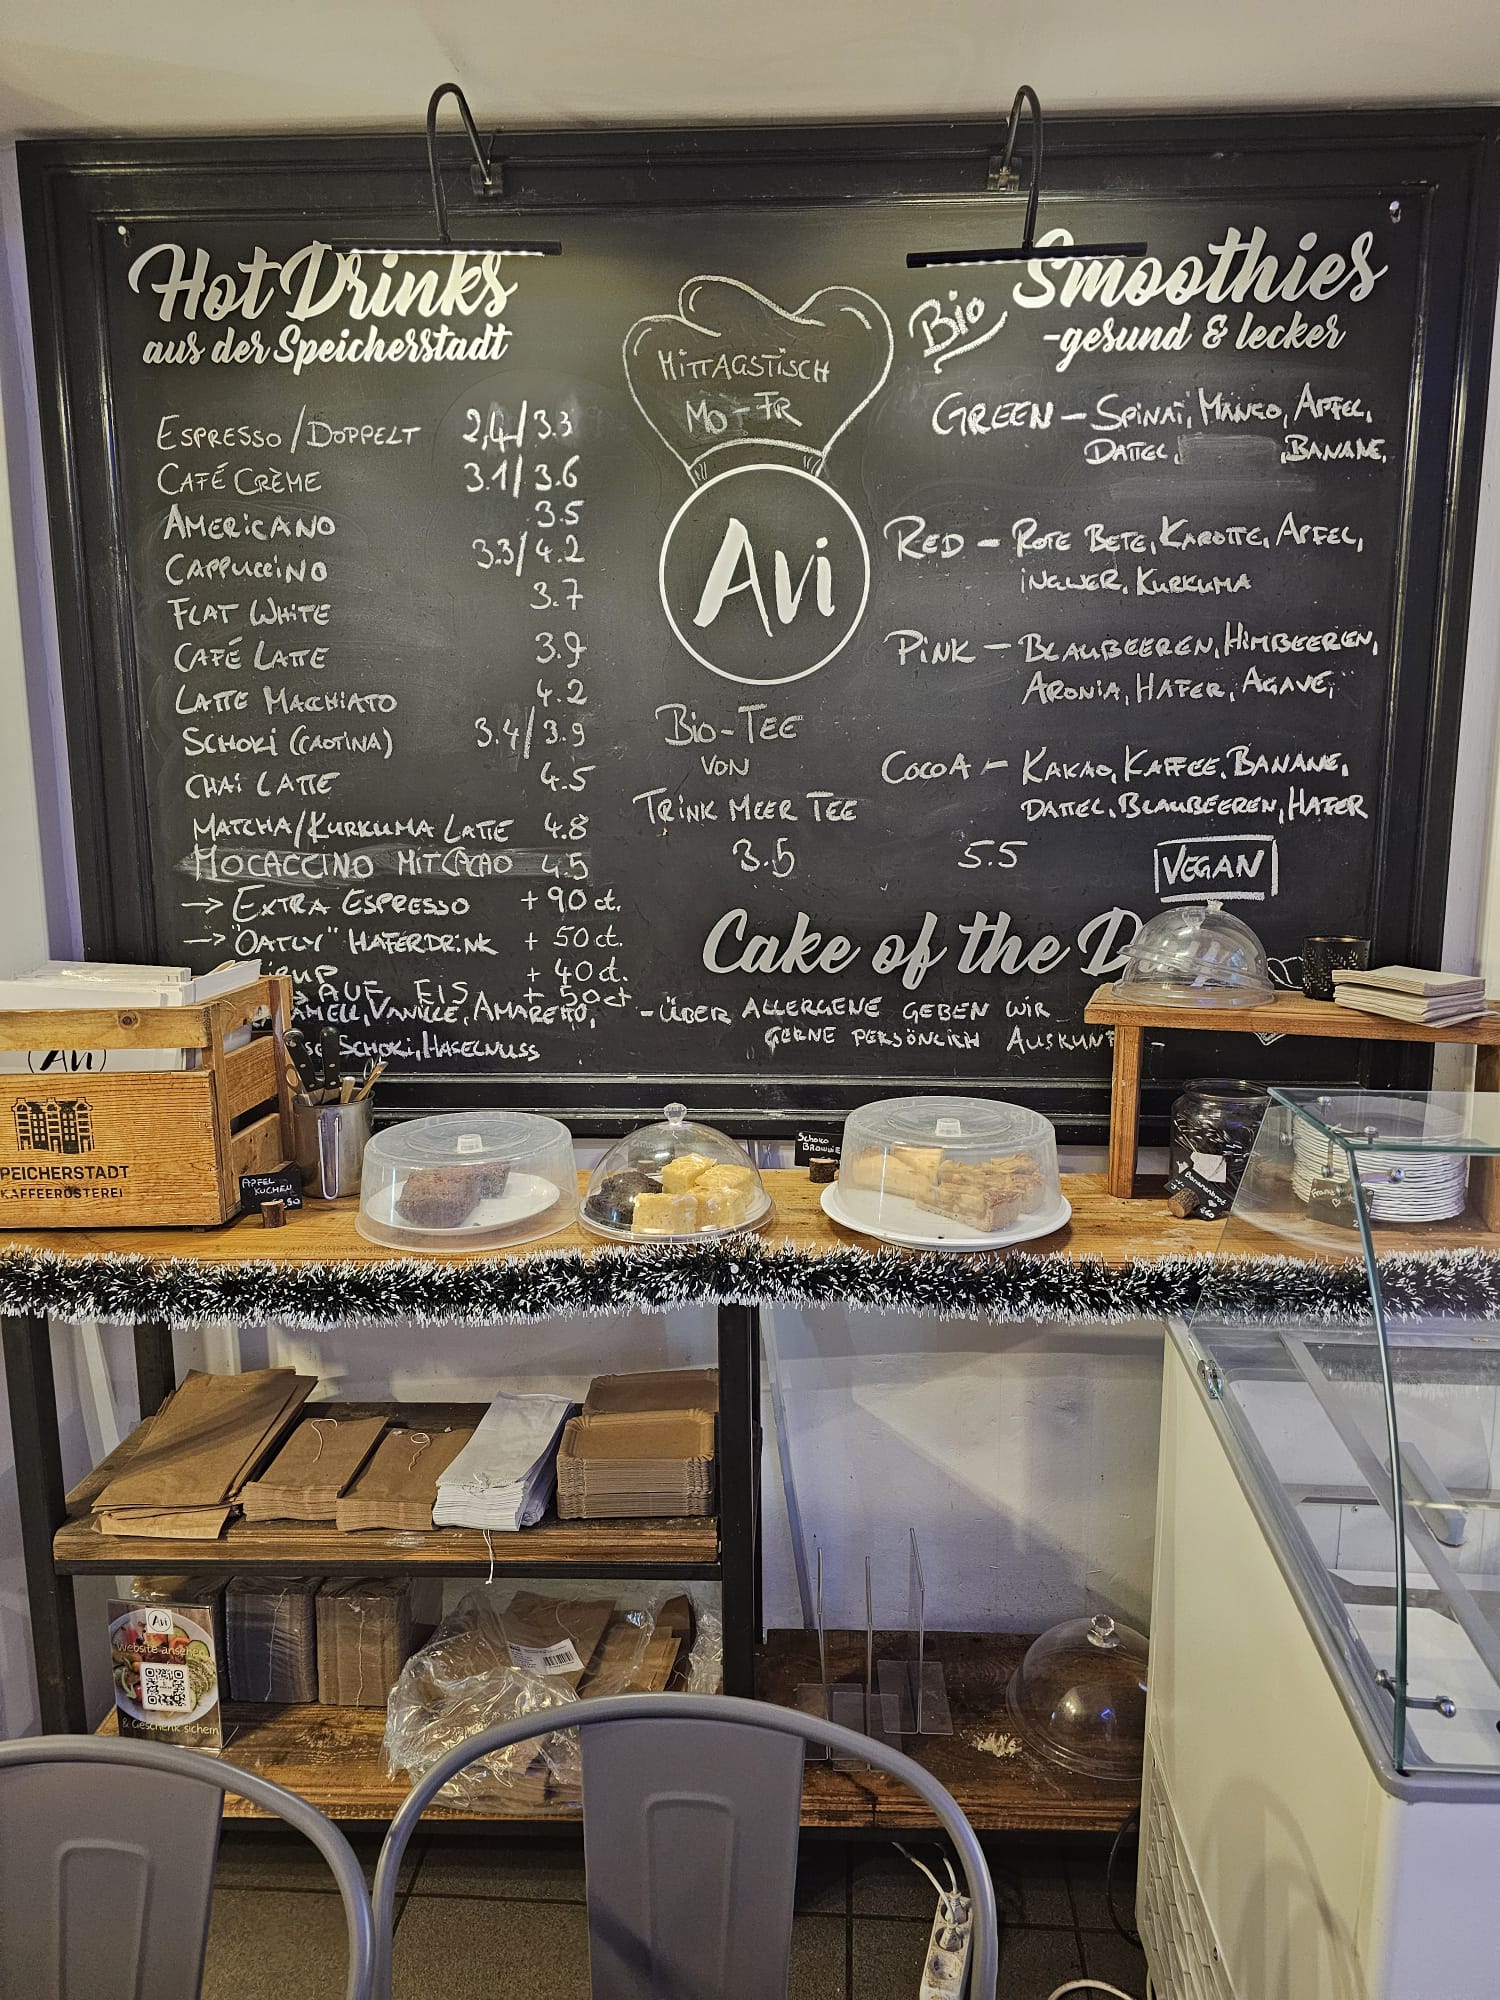 Hot Drinks
aus der Speicherstadt
ESPRESSO/DOPPELT 2,4/3.3
CAFÉ CRÈME 3.1/3.6
AMERICANO 3.5
CAPPUCCINO 3.3/4.2
FLAT WHITE 3.7
CAFÉ LATTE 3.9
LATTE MACCHIATO 4.2
SCHOKI (CAOTINA) 3.4/3.9
CHAI LATTE 4.5
MATCHA/KURKUMA LATTE 4.8
MOCACCINO MIT CACAO 4.5
→ EXTRA ESPRESSO + 90 ct.
→ "OATLY" HAFERDRINK + 50 ct.
+ 40 ct.
AUF EIS + 50 ct
VANILLE, AMARETTO,
SCHOKI, HASELNUSS
MITTAGSTISCH
MO-FR
Avi
BIO-TEE
VON
TRINK MEER TEE
3.5
Bio
Smoothies
-gesund & lecker
GREEN - SPINAT, MANGO, APFEL,
DATTEL, BANANE,
RED - ROTE BETE, KAROTTE, APFEL,
INGWER, KURKUMA
PINK - BLAUBEEREN, HIMBEEREN,
ARONIA, HAFER, AGAVE,
COCOA - KAKAO, KAFFEE, BANANE,
DATTEL, BLAUBEEREN, HAFER
5.5
VEGAN
Cake of the D
-ÜBER ALLERGENE GEBEN WIR
GERNE PERSÖNLICH AUSKUNFT -
(Avi)
PEICHERSTADT
KAFFEERÖSTEREI
APFEL
KUCHEN
SCHOKO
BROWNIE
Bananenbrot
Avi
Website ansehen
& Geschenk sichern